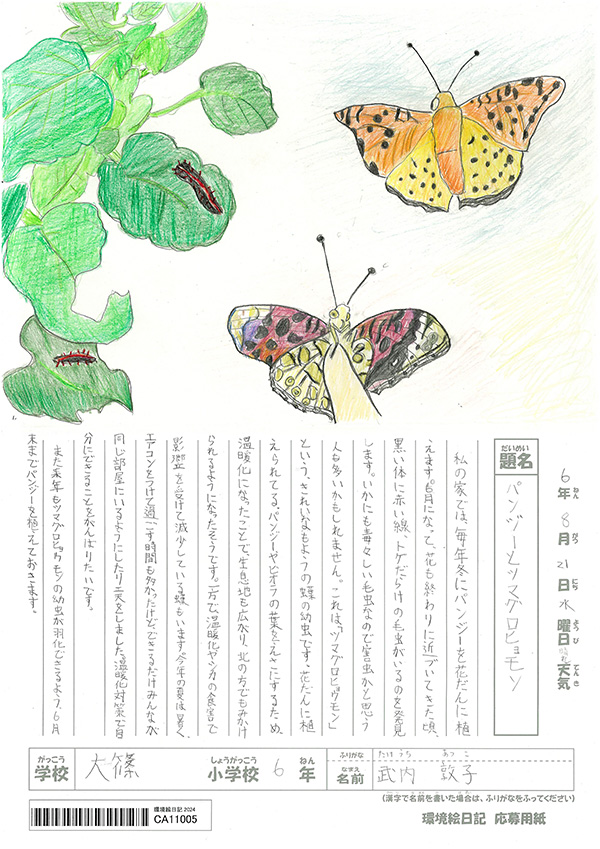 6年 8月 21日 水曜日 晴れ天気
ねん がつ にち ようび てんき
だいめい
題名
パンジーとツマグロヒョモン
私の家では、毎年冬にパンジーを花だんに植
えます。6月になって、花も終わりに近づいてきた頃、
黒い体に赤い線、トゲだらけの毛虫がいるのを発見
します。いかにも毒々しい毛虫なので害虫かと思う
人も多いかもしれません。これは、「ツマグロヒョウモン」
という、きれいなもようの蝶の幼虫です。花だんに植
えられてる、パンジーやビオラの葉をえさにするため、
温暖化になったことで、生息地も広がり、北の方でもみかけ
られるようになったそうです。一方で、温暖化やシカの食害で
影響を受けて減少している蝶もいます。今年の夏は暑く、
エアコンをつけて過ごす時間も多かったけど、できるだけみんなが
同じ部屋にいるようにしたり工夫をしました。温暖化対策で自
分にできることをがんばりたいです。
また来年もツマグロヒョウモンの幼虫が羽化できるよう、6月
末までパンジーを植えておきます。
がっこう しょうがっこう ねん
学校 大篠 小学校 6年
ふりがな たけうち あつこ
なまえ
名前 武内 敦子
(漢字で名前を書いた場合は、ふりがなをふってください)
環境絵日記 2024
CA11005
環境絵日記 応募用紙